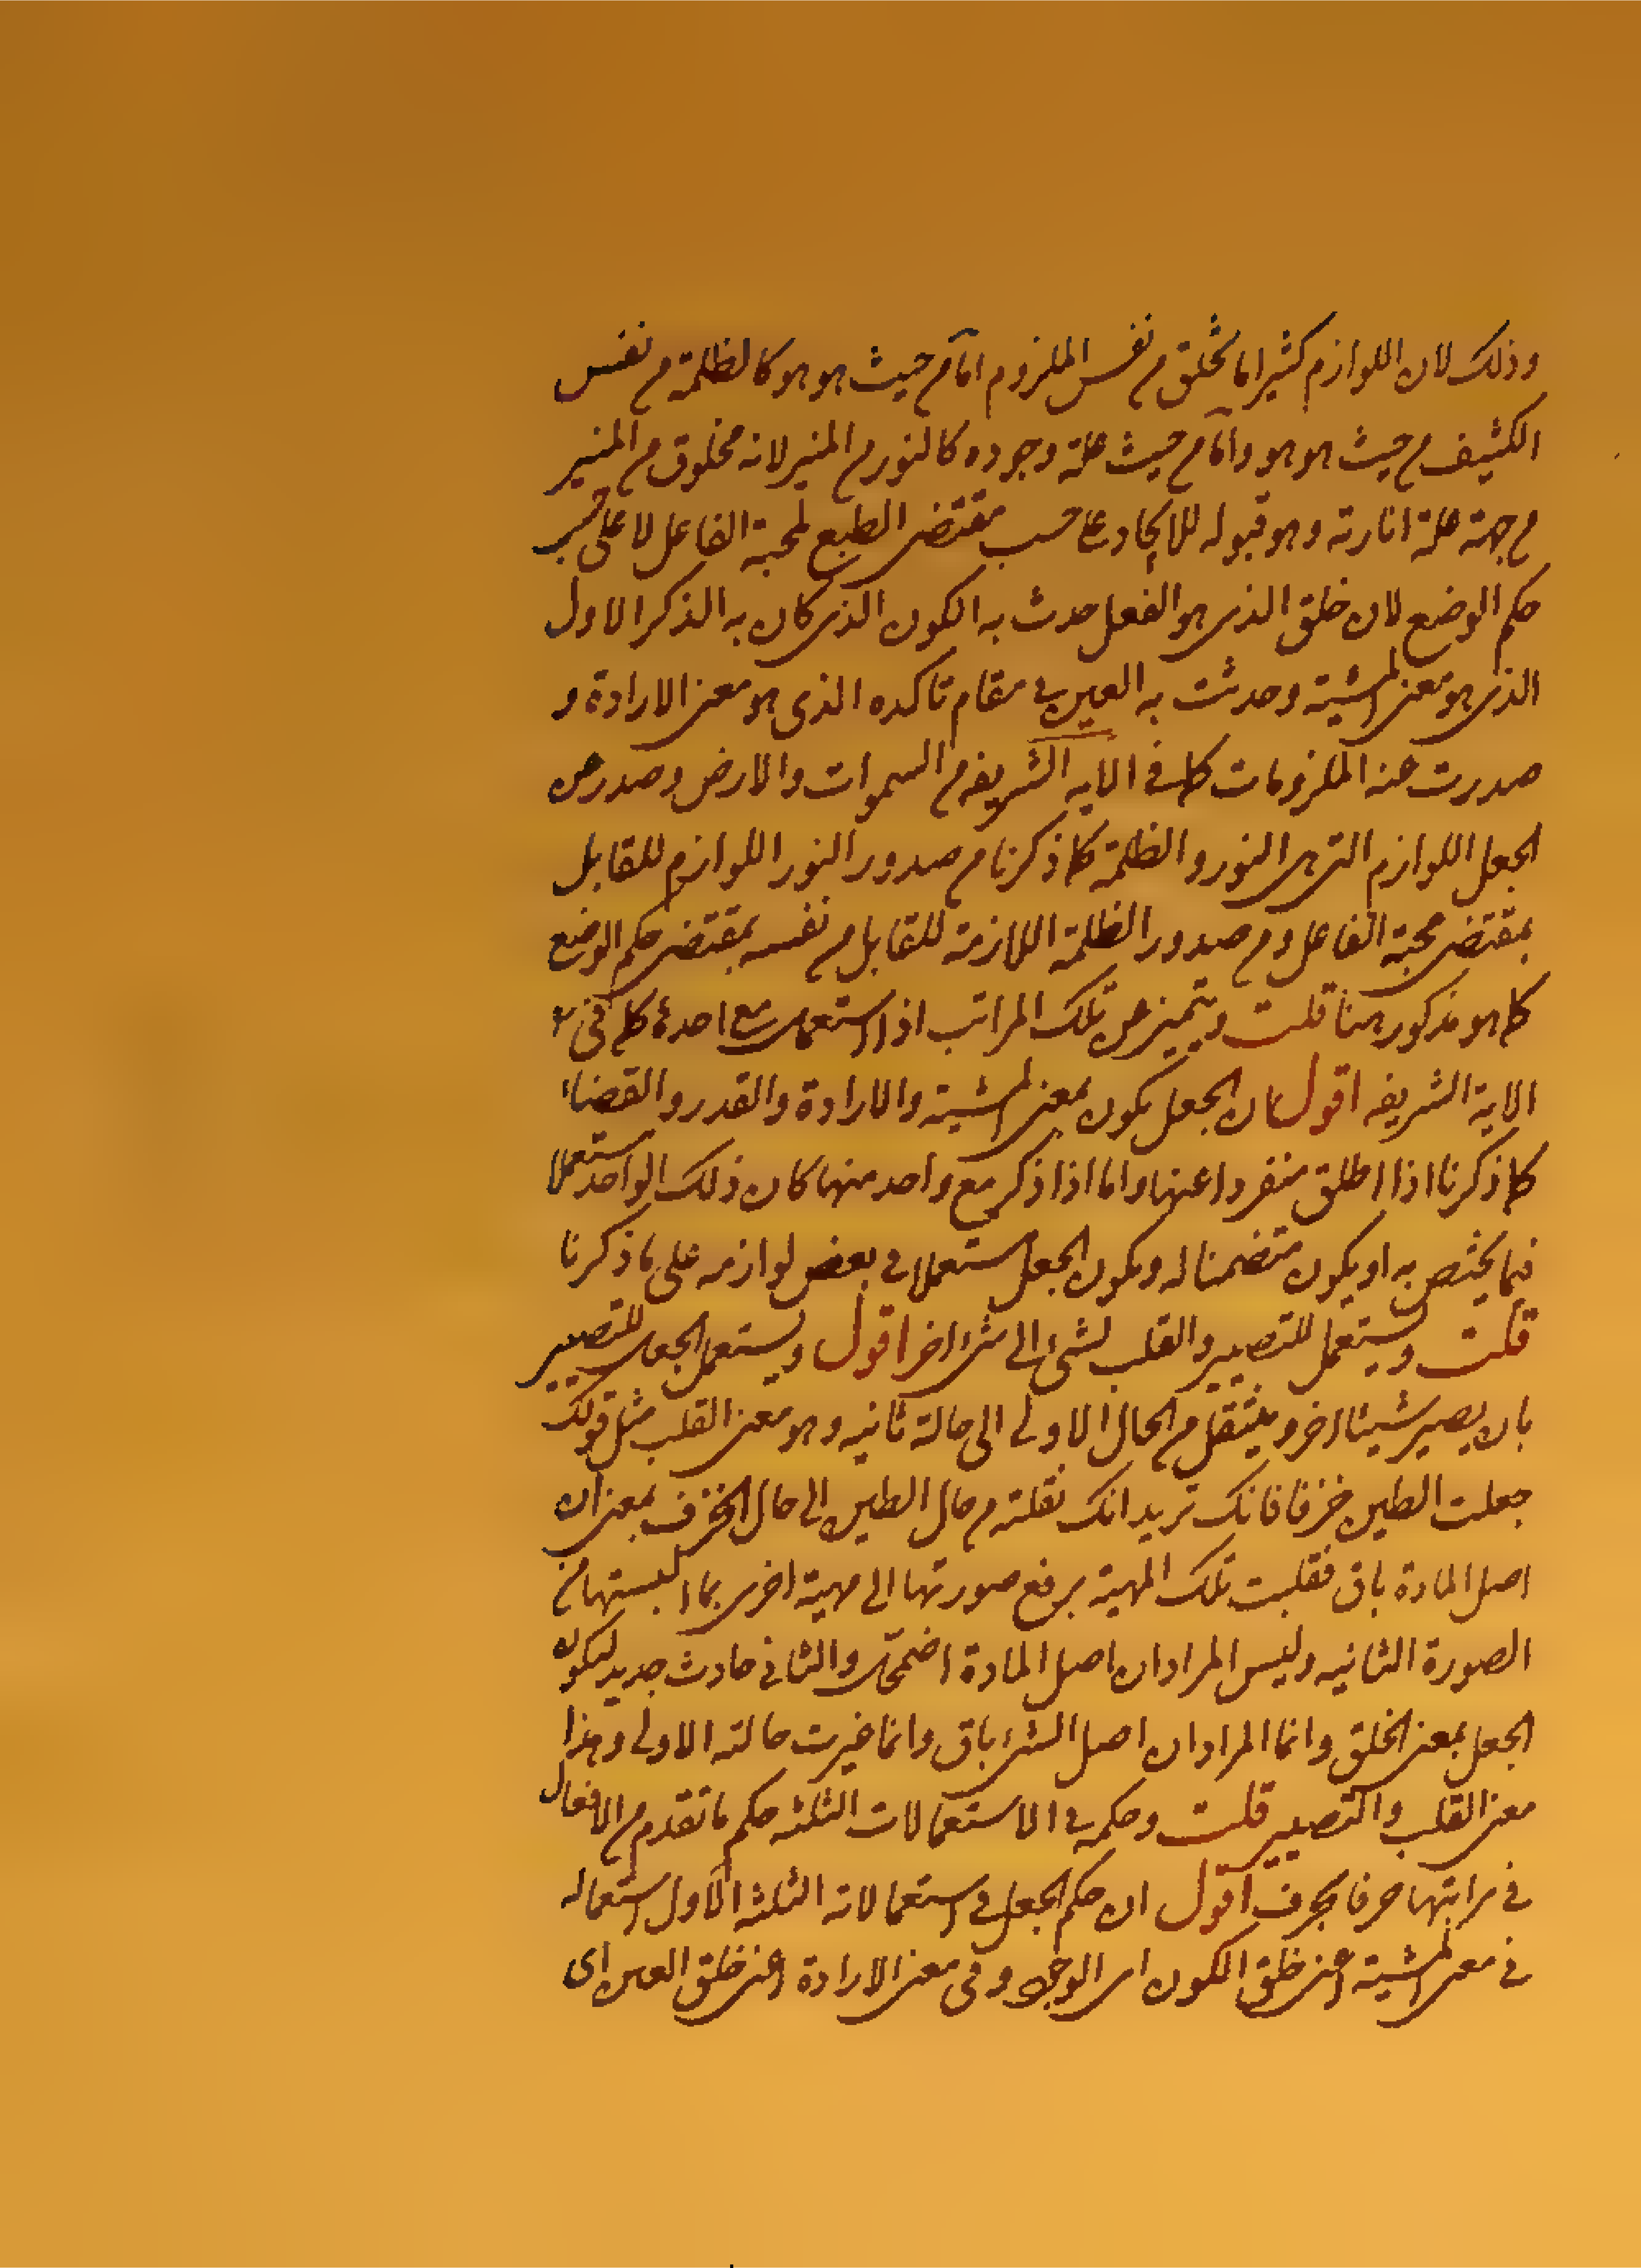 وذلك لان اللوازم كثيرا ما يخلق من نفس الملزوم اما من حيث هو هو كالظلمة من نفس
الكثيف من حيث هو هو واما من حيث علة وجوده كالنور من المنير لانه مخلوق من المنير
من جهة علة انارته وهو قبوله للايجاد على حسب مقتضى الطبع لمحبة الفاعل لا على حسب
حكم الوضع لان خلق الذى هو الفعل حدث به الكون الذى كان به الذكر الاول
الذى هو معنى المشية وحدثت به العين فى مقام تاكده الذى هو معنى الارادة و
صدرت عنه الملزومات كما فى الايه الشريفه من السموات والارض وصدر عن
الجعل اللوازم التى هى النور والظلمة كما ذكرنا من صدور النور اللوازم للقابل
بمقتضى محبة الفاعل ومن صدور الظلمة اللازمة للقابل من نفسه بمقتضى حكم الوضع
كما هو مذكور هنا قلت ويتميز عن تلك المراتب اذا استعمل مع احدها كما فى
الاية الشريفه اقول ان الجعل يكون بمعنى المشية والارادة والقدر والقضاء
كما ذكرنا اذا اطلق منفردا عنها واما اذا ذكر مع واحد منها كان ذلك الواحد مستعملا
فيما يختص به او يكون متضمنا له ويكون الجعل مستعملا فى بعض لوازمه على ما ذكرنا
قلت ويستعمل للتصيير والقلب لشئ الى شئ اخر اقول ويستعمل الجعل للتصيير
بان يصير شيئا اخر وينتقل من الحال الاولى الى حالة ثانيه وهو معنى القلب مثل قولك
جعلت الطين خزفا فانك تريد انك نقلته من حال الطين الى حال الخزف بمعنى ان
اصل المادة باق فقلبت تلك المهية برفع صورتها الى مهية اخرى بما البستها من
الصورة الثانيه وليس المراد ان اصل المادة اضمحل والثانى حادث جديد ليكون
الجعل بمعنى الخلق وانما المراد ان اصل الشئ باق وانما غيرت حالته الاولى وهذا
معنى القلب والتصيير قلت وحكمه فى الاستعمالات الثلثه حكم ما تقدم من الافعال
فى مراتبها حرفا بحرف اقول ان حكم الجعل فى استعمالاته الثلثه الاول استعماله
فى معنى المشية اعنى خلق الكون اى الوجود وفى معنى الارادة اعنى خلق العين اى